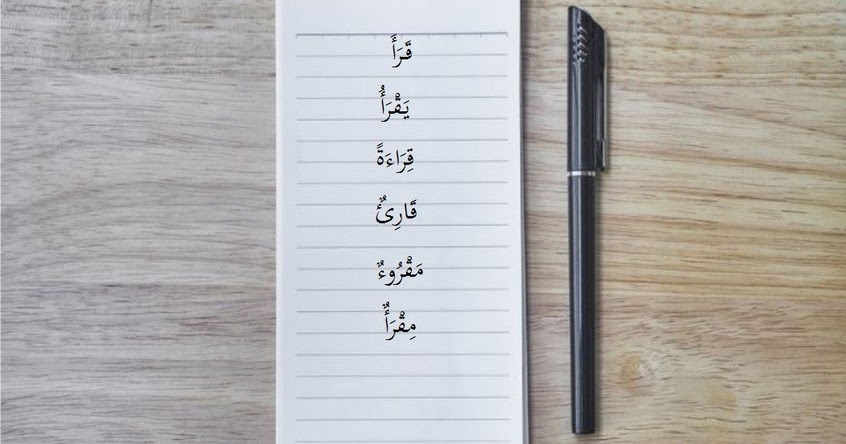 قَرَأَ
يَقْرَأُ
قِرَاءَةً
قَارِئٌ
مَقْرُوءٌ
مِقْرَأٌ